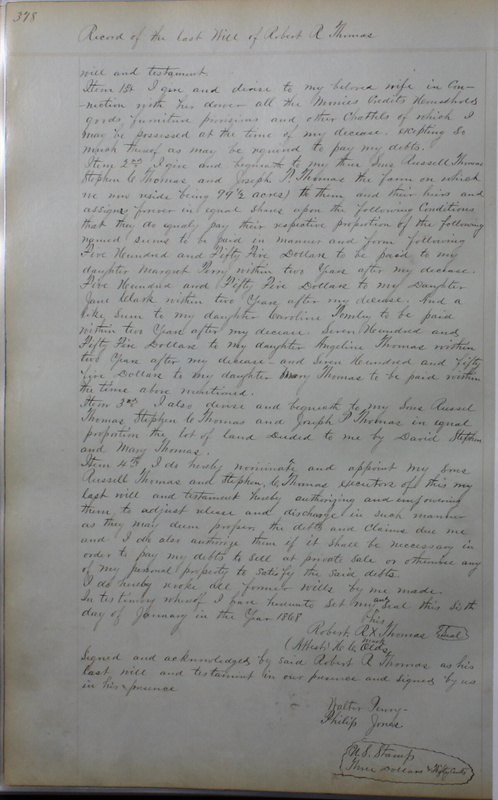 378
Record of the last Will of Robert R Thomas
will and testament
Item 1st I give and devise to my beloved wife in Con-
-nection with her dower all the Monies Credits Household
goods, furniture provisions and other Chattels of which I
may be possessed at the time of my decease. excepting So
much thereof as may be required to pay my debts.
Item 2nd I give and bequeath to my three Sons Russell Thomas
Stephen C Thomas and Joseph P Thomas the farm on which
we now reside being 99 1/2 acres) to them and their heirs and
assigns forever in equal Shares upon the following Conditions
that they do equally pay their respective proportion of the following
named Sums to be paid in manner and form following
Five Hundred and Fifty Five Dollars to be paid to my
daughter Margret Perry within two Years after my decease.
Five Hundred and Fifty Five Dollars to my Daughter
Jane Clark within two Years after my decease. And a
like Sum to my daughter Caroline to be paid
within two Years after my decease Seven Hundred and
Fifty Five Dollars to my daughter Angeline Thomas within
two Years after my decease - and Seven Hundred and Fifty
five Dollars to my daughter Mary Thomas to be paid within
the time above mentioned.
Item 3rd I also devise and bequeath to my Sons Russel
Thomas Stephen C Thomas and Joseph P Thomas in equal
propotion the lot of land Deeded to me by David Stephen
and Mary Thomas.
Item 4th I do hereby nominate and appoint my Sons
Russell Thomas and Stephen C Thomas executors of this my
last will and testament hereby authorizing and empowering
them to adjust release and discharge in such manner
as they may deem proper the debts and claims due me
and I do also authorize them if it shall be necessary in
order to pay my debts to Sell at private Sale or otherwise any
of my personal property to Satisfy the said debts.
I do hereby revoke all former Wills by me made.
In testimony whereof I have hereunto Set my hand and Seal this
day of January in the Year 1868
his
Robert R X Thomas Seal
mark
(Attest) H C
Signed and acknowledged by said Robert R Thomas as his
last will and testament in our presence and signed by us
in his presence
Walter Perry
Philip Jones
U.S. Stamp
Three Dollars & Fifty Cents